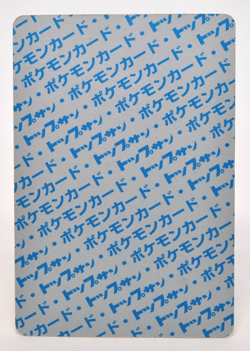 ポケモンカード・
トップサン・ポケモンカード・
ポケモンカード・トップサン・
トップサン・ポケモンカード・
ポケモンカード・トップサン・
トップサン・ポケモンカード・
ポケモンカード・トップサン・
トップサン・ポケモンカード・
ポケモンカード・トップサン・
トップサン・ポケモンカード・
ポケモンカード・トップサン・
トップサン・